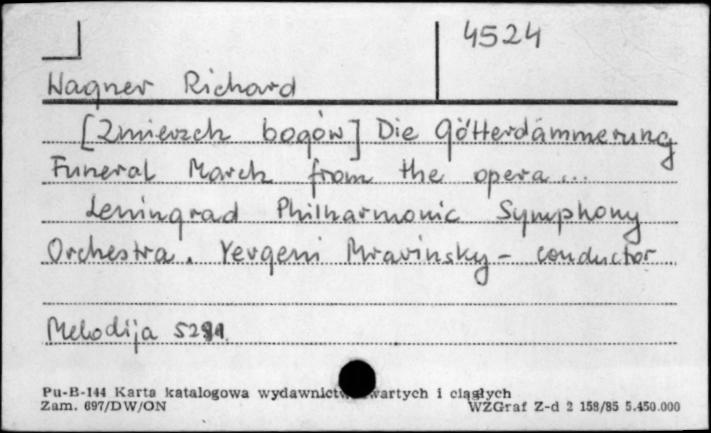 4524
Wagner Richard
[Zmierzch bogów] Die Götterdämmerung
Funeral March from the opera...
Leningrad Philharmonic Symphony
Orchestra. Yevgeni Mravinsky – conductor
Melodija
Pu-B-144 Karta katalogowa wydawnictw zwartych i ciągłych
Zam. 697/DW/ON WZGraf Z-d 2 158/85 5.450.000